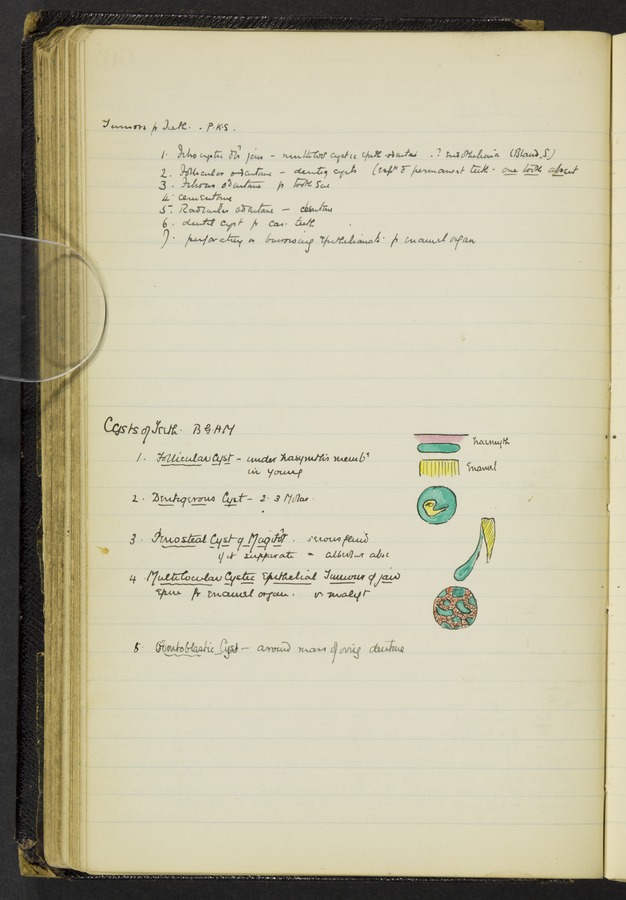 Tumors fr Teeth. - P.K.S.
1. Fibrocystic dis jaw - multiloc cystic epith odontome .? Endothelioma (Bland S)
2. Follicular odontome - dentig cysts permanent teeth - one tooth absent
3. Fibrous odontome fr tooth sac
4. cementome
5. Radicular odontome - dentine
6. dental cyst fr car. teeth
7. perforating or burrowing Epithelioma fr enamel organ
Cysts of Teeth. B G.A M
1. Follicular Cyst - under nasmyth's memb
in young
nasmyth
Enamel
2. Dentigerous Cyst - 2. 3 Molar
3. Periosteal Cyst of Magitot. serous fluid
if it suppurate = alveolar absc
4. Multilocular Cystic Epithelial Tumour of jaw
Epith fr Enamel organ. malgt
5. Odontoblastic Cyst - around mass of dentine